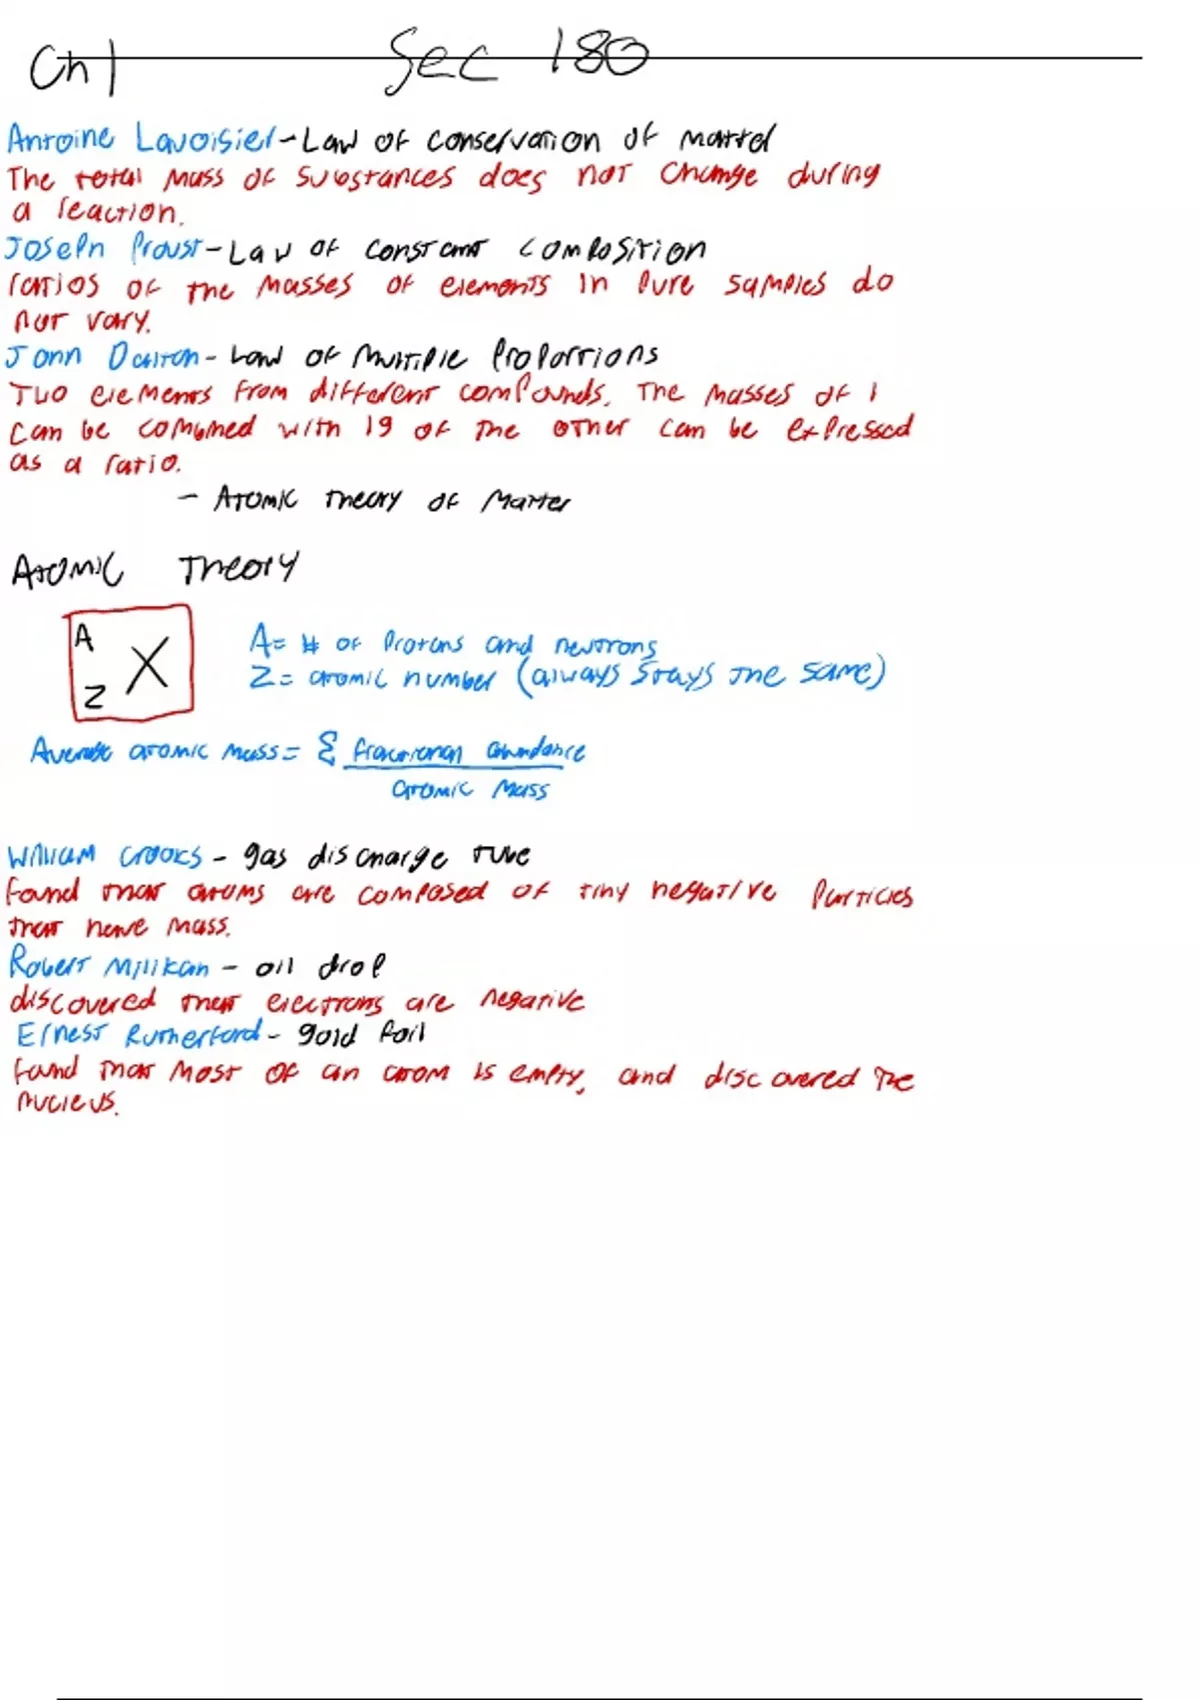 Ch 1 Sec 180
Antoine Lavoisier - Law of conservation of matter
The total mass of substances does not change during
a reaction.
Joseph Proust - Law of constant composition
ratios of the masses of elements in pure samples do
not vary.
John Dalton - Law of Multiple Proportions
Two elements from different compounds. The masses of 1
can be combined with 1g of the other can be expressed
as a ratio.
- Atomic theory of Matter
Atomic Theory
A
Z X
A = # of protons and neutrons
Z = atomic number (always stays the same)
Average atomic mass = Σ fractional abundance
atomic mass
William Crooks - gas discharge tube
found that atoms are composed of tiny negative particles
that have mass.
Robert Millikan - oil drop
discovered that electrons are negative
Ernest Rutherford - gold foil
found that most of an atom is empty, and discovered the
nucleus.